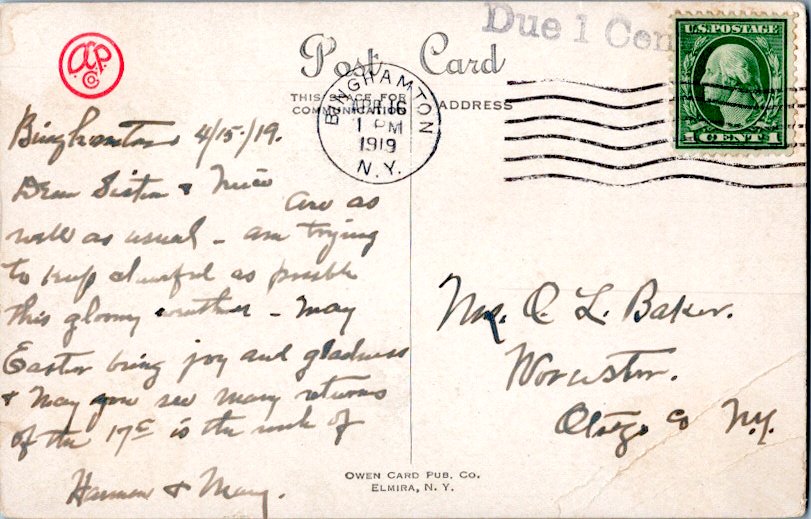 Due 1 Cen
U.S. POSTAGE
1 CENT 1
O.C.P.
Co.
Post Card
THIS SPACE FOR
COMMUNICATION
ADDRESS
BINGHAMTON
APR 16
1 PM
1919
N.Y.
Binghamton 4/15/19.
Dear Sister & Niece
Are as
well as usual - am trying
to keep cheerful as possible
this gloomy weather - May
Easter bring joy and gladness
& May you see many returns
of the 17th is the wish of
Harmon & Mary.
L. Baker.
Worcester.
Otsego Co N.Y.
OWEN CARD PUB. CO.
ELMIRA, N. Y.